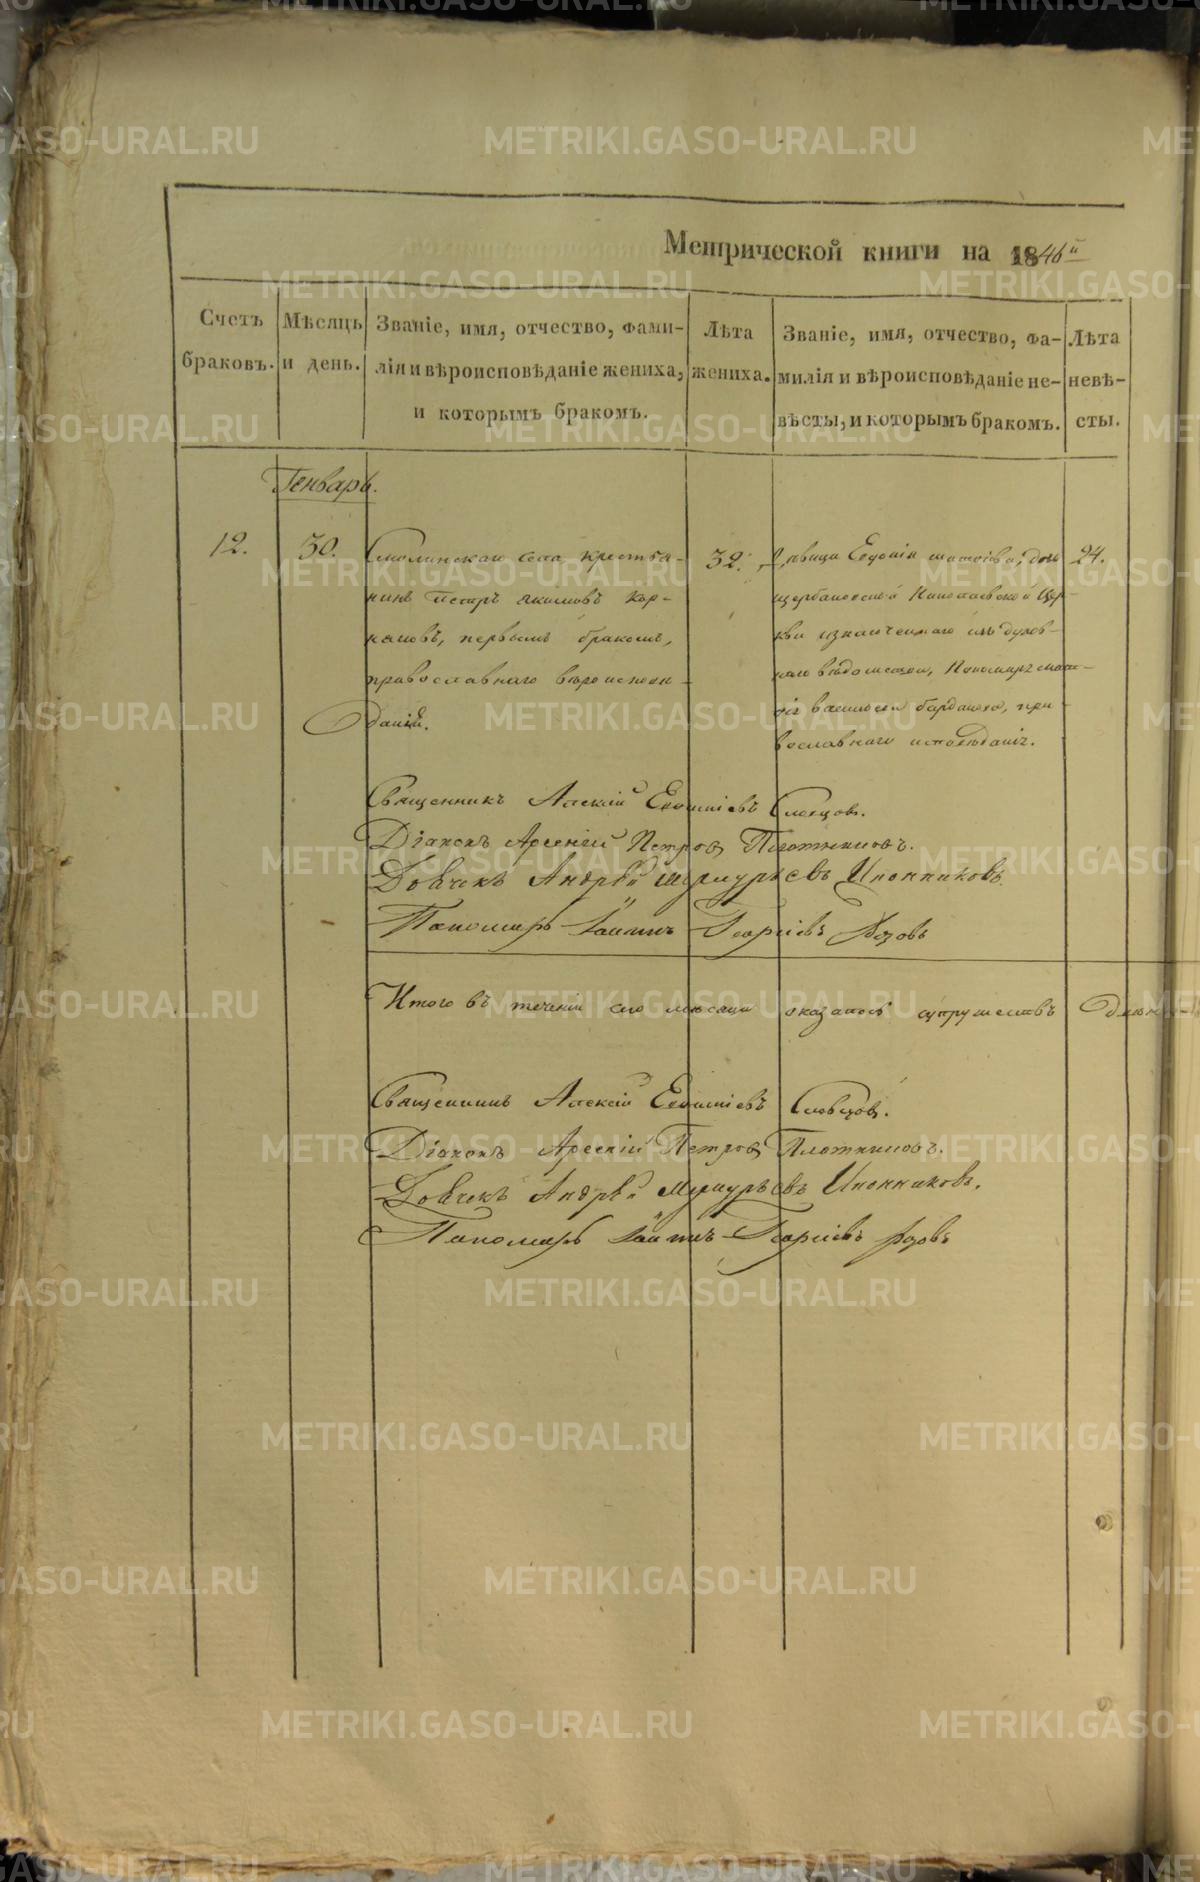 Метрической книги на 1846й
Счетъ браковъ.
Мѣсяцъ и день.
Званіе, имя, отчество, фами-
лія и вѣроисповѣданіе жениха,
и которымъ бракомъ.
Лѣта
жениха.
Званіе, имя, отчество, фа-
милія и вѣроисповѣданіе не-
вѣсты, и которымъ бракомъ.
Лѣта
невѣ-
сты.
Генварь.
12.
30.
Смолинскаго села крестья-
нинъ Петръ Якимовъ
первымъ бракомъ,
православнаго вѣроисповѣ-
данія.
32.
Дѣвица дочь
церк-
ви изъ духов-
наго вѣдомства, Пономаря
пра-
вославнаго исповѣданія.
24.
Священникъ Алексій Словцов.
Діаконъ Арсеній Петров Плотниковъ.
Дьячекъ Андрей Меркурьевъ Иконниковъ.
Пономарь Георгіевъ
Итого въ теченіи сего мѣсяца оказалось супружествъ
Священникъ Алексій Словцов.
Діаконъ Арсеній Петров Плотниковъ.
Дьячекъ Андрей Меркурьевъ Иконниковъ.
Пономарь Георгіевъ
METRIKI.GASO-URAL.RU